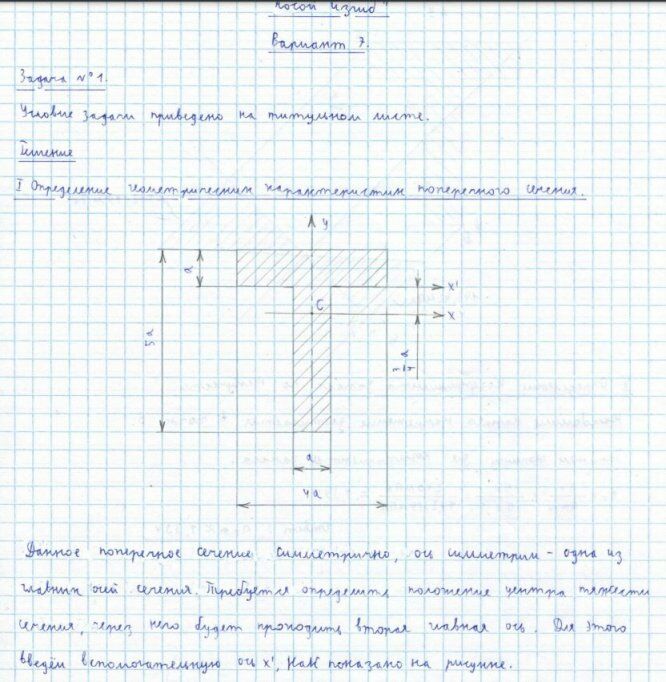 "Косой изгиб"
Вариант 7.
Задача №1.
Условие задачи приведено на титульном листе.
Решение
I Определение геометрических характеристик поперечного сечения.
y
a
x'
C
x
5a
a
4a
Данное поперечное сечение симметрично, ось симметрии - одна из
главных осей сечения. Требуется определить положение центра тяжести
сечения, через него будет проходить вторая главная ось. Для этого
введём вспомогательную ось x', как показано на рисунке.